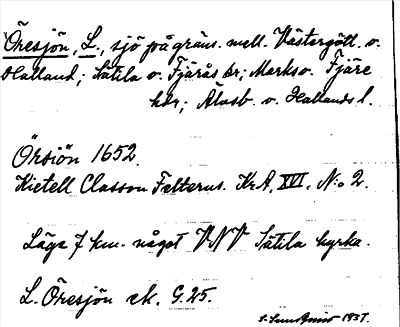 Öresjön, L., sjö på gräns. mell. Västergötl. o.
Halland; Sätila o. Fjärås sr; Marks o. Fjäre
hdr; Älvsb. o. Hallands l.
Örsiön 1652.
Kietell Classon Felterus. KrA, XVI, N:o 2.
Läge 7 km. något VNV Sätila kyrka.
L. Öresjön ek. G. 25.
1937.